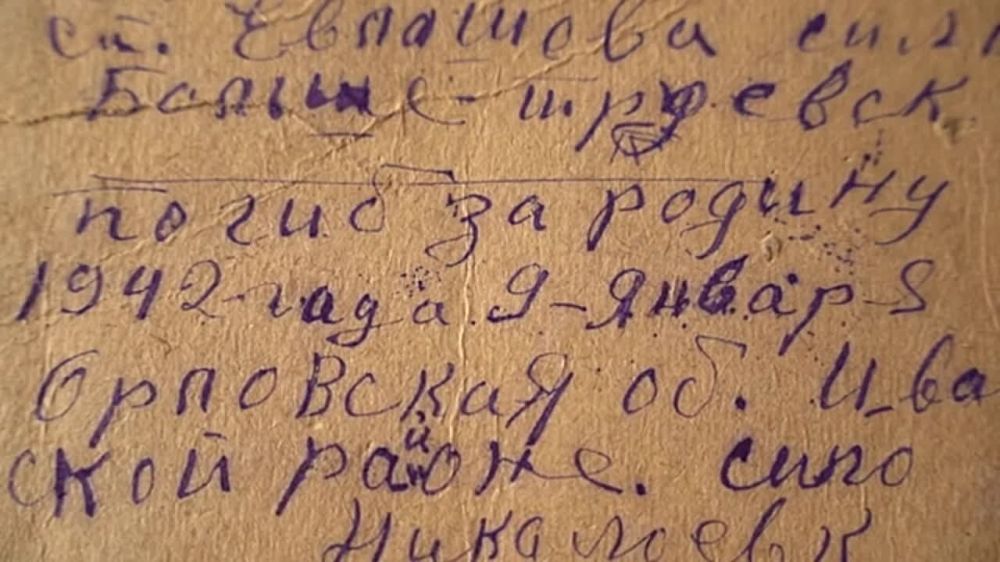 ст. Евпашова силн
Больше-трудевск
погиб за родину
1942-гада 9-Января
Орловская об. Ива
ской райне. сило
Никалоевк